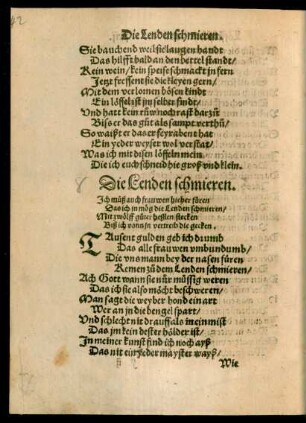 Die Lenden schmieren.
Sie bauchend weil sie laugen handt
Das hilfft bald an den bettel standt/
Kein wein/kein speise schmackt jn fern
Jetzt fressent sie die kleyen gern/
Mit dem verlornen bösen kindt
Ein löffelist jm selber findt/
Und hatt kein rüw noch rast darzů
Biss er das gůt als sampt verthů/
So waißt er das er feyrabent hat
Ein yeder weyser wol verstat/
Was ich mit disen löfflein mein
Die ich euch schneid hie groß vnd klein.
Die Lenden schmieren.
Ich můß auch frauwen hieher füren
Das ich in mög die Lenden schmieren/
Mit zwölff gůter heßlen stecken
Biß ich vonen vertreib die gecken.
TAusent gulden geb ich drumb
Das alle frauwen vmb vnd vmb/
Die vns mann bey der nasen füren
Kemen zů dem Lenden schmieren/
Ach Gott wann sie nůr müssig weren
Das ich sie also möcht beschweren/
Man sagt die weyber hond ein art
Wer an jn die bengel spart/
Vnd schlecht nit drauff als in ein mist
Das jm kein dester hölder ist/
In meiner kunst find ich noch ayß
Das nit ein yeder mayster wayß/
Wie